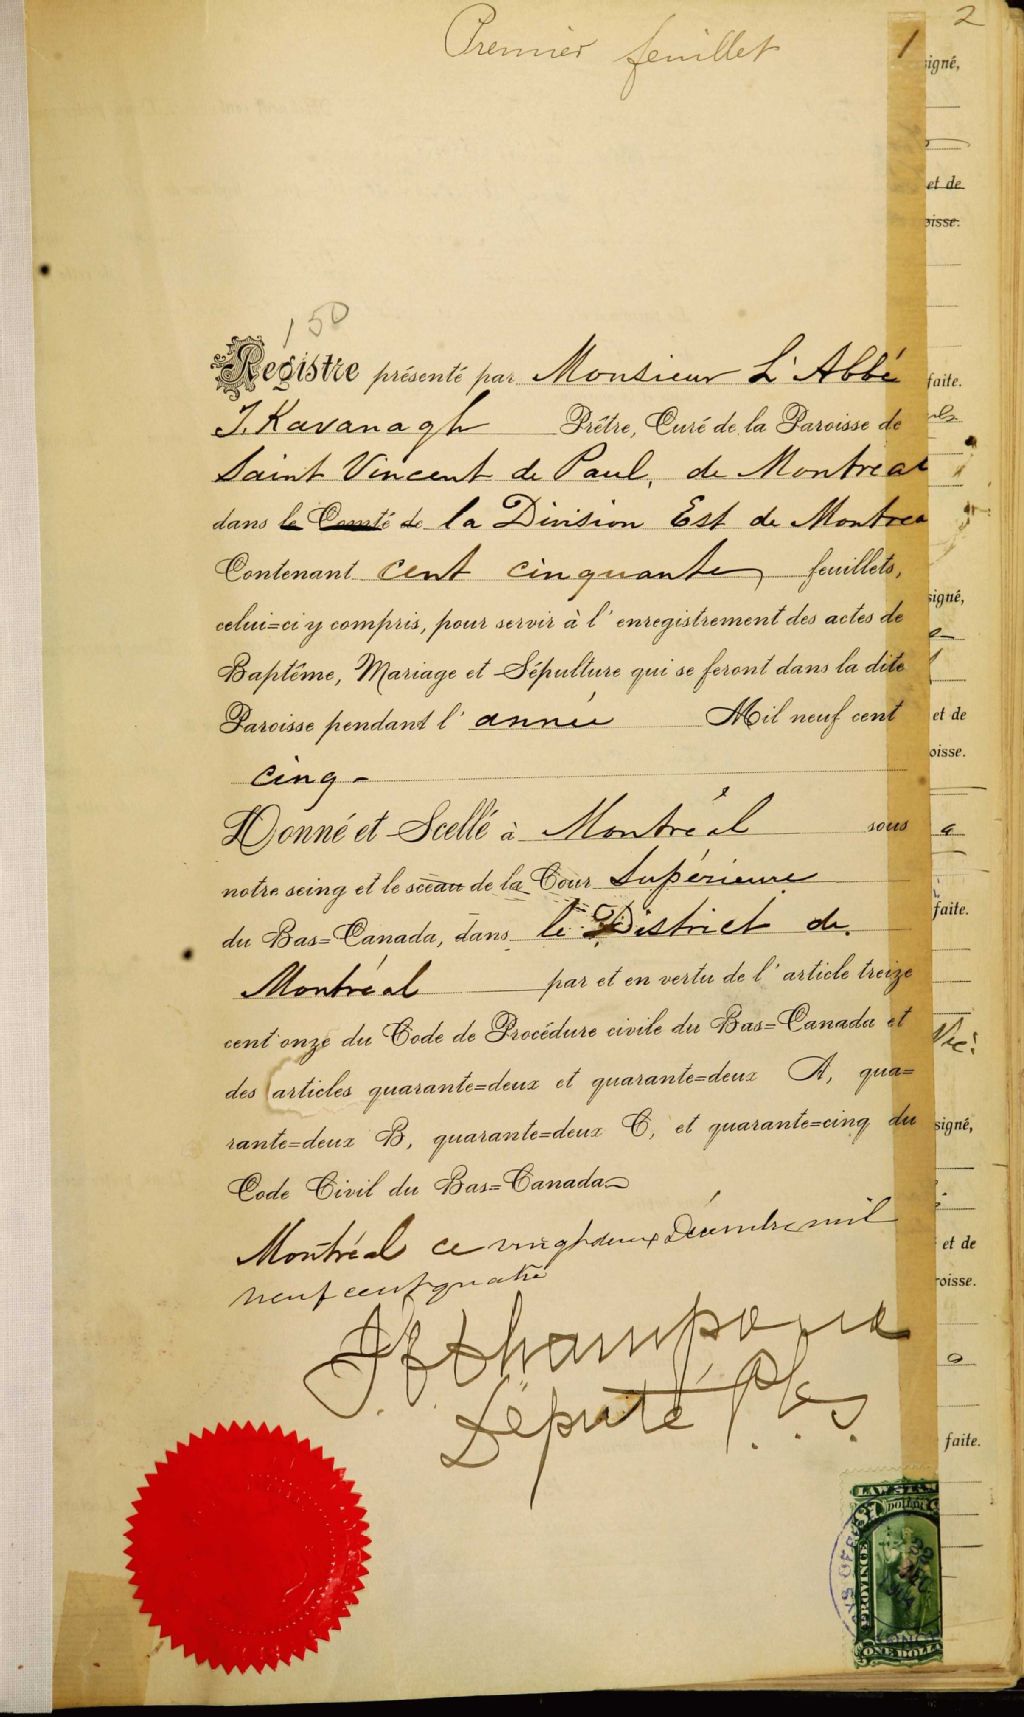 2
Premier feuillet
1
150
Registre présenté par Monsieur L'Abbé
J. Kavanagh Prêtre, Curé de la Paroisse de
Saint Vincent de Paul, de Montreal
dans le Comté de la Division Est de Montrea
Contenant cent cinquante feuillets,
celui=ci y compris, pour servir à l'enregistrement des actes de
Baptême, Mariage et Sépulture qui se feront dans la dite
Paroisse pendant l'année Mil neuf cent
cinq -
Donné et Scellé à Montréal sous
notre seing et le sceau de la Cour Supérieure
du Bas=Canada, dans le District de
Montréal par et en vertu de l'article treize
cent onze du Code de Procédure civile du Bas=Canada et
des articles quarante=deux et quarante=deux A, qua=
rante=deux B, quarante=deux C, et quarante=cinq du
Code Civil du Bas=Canada
Montréal ce vingt deux Décembre mil
neuf cent quatre
Député P. C. S.
igné,
et de
oisse.
faite.
signé,
et de
oisse.
faite.
Vic:
signé,
et de
roisse.
faite.
DOLLAR
PROVINCE
22
DEC
1904
ONE DOLLA